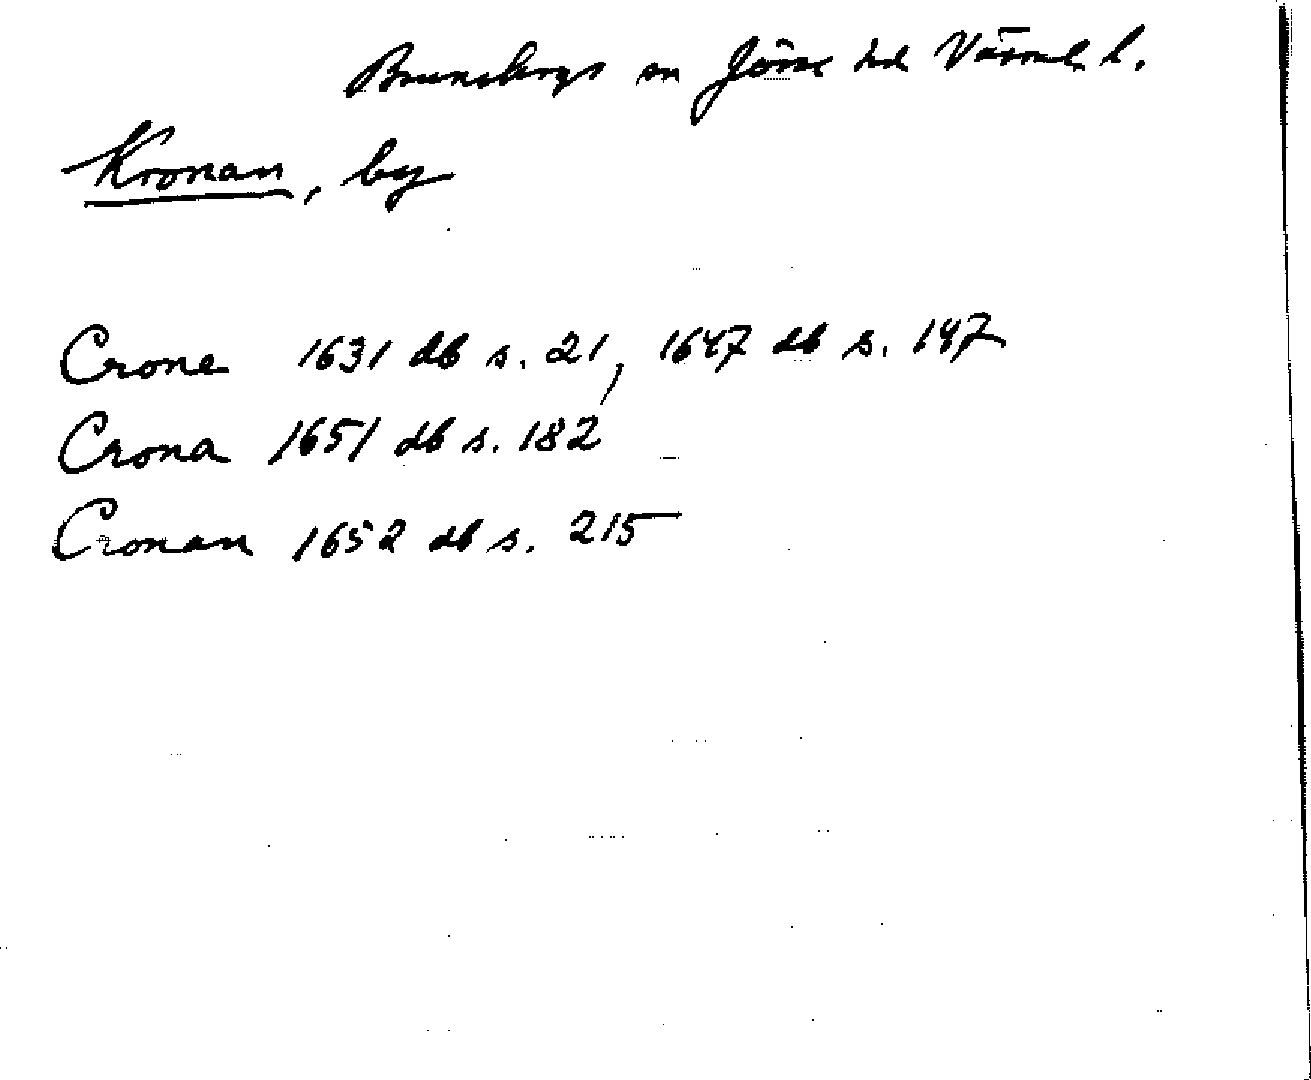 Brunskogs sn Jösse hd Värml. l.
Kronan, by
Crone 1631 db s. 21, 1647 db s. 147
Crona 1651 db s. 182
Cronan 1652 db s. 215